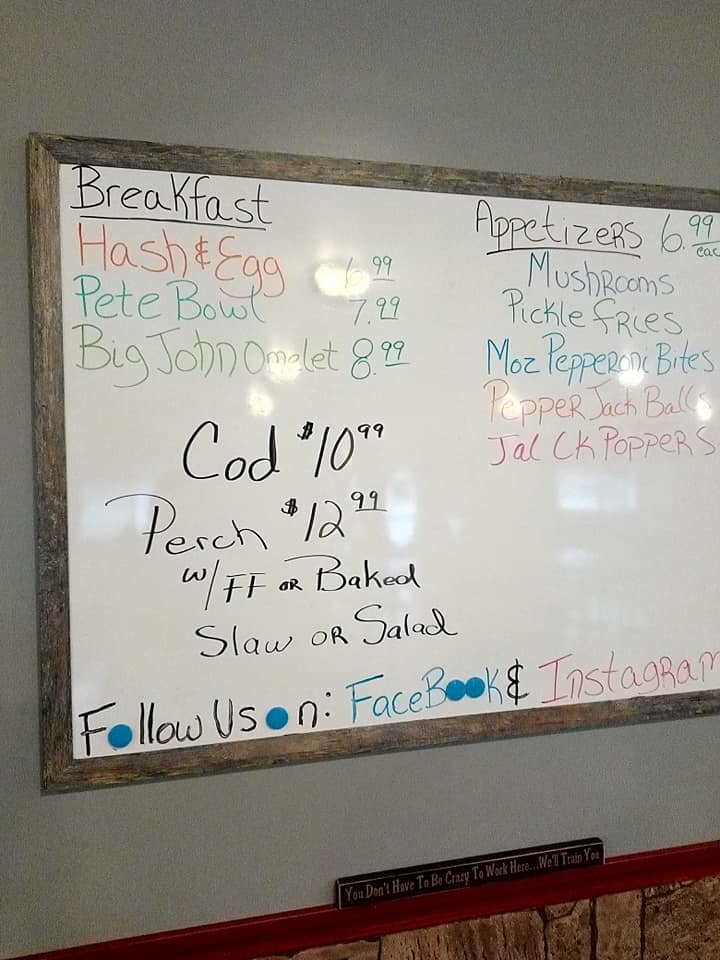 Breakfast
Hash & Egg 6.99
Pete Bowl 7.99
Big John Omelet 8.99
Cod $10.99
Perch $12.99
w/ FF OR Baked
Slaw OR Salad
Appetizers 6.99
eac
Mushrooms
Pickle fries
Moz Pepperoni Bites
Pepper Jack Balls
Jal Ck Poppers
Follow Us on: FaceBook & Instagram
You Don't Have To Be Crazy To Work Here...We'll Train You